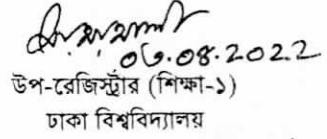 ০৬.০৪.2022
উপ-রেজিস্ট্রার (শিক্ষা-১)
ঢাকা বিশ্ববিদ্যালয়